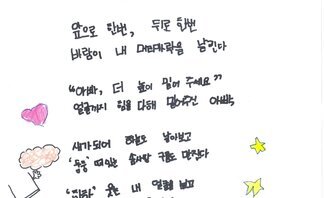 앞으로 한번, 뒤로 한번
바람이 내 머리카락을 날린다
"아빠, 더 높이 밀어 주세요"
얼굴까지 힘을 다해 밀어주신 아빠
새가되어 하늘도 날아보고
'둥둥' 떠있는 솜사탕 구름도 만진다
웃는 내 얼굴 보고